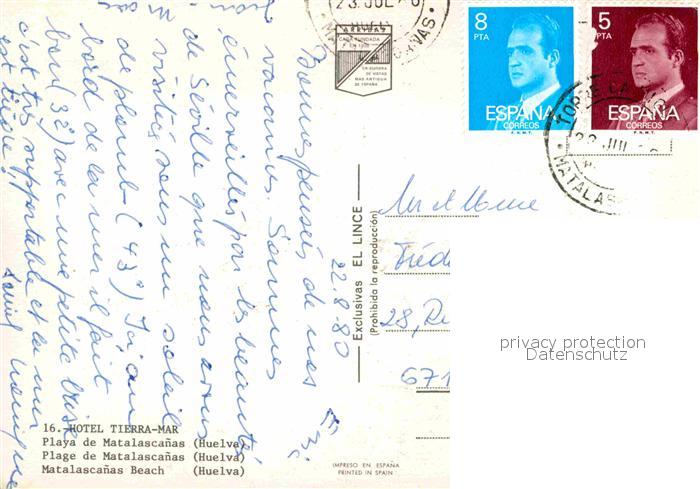 Bonnes pensées de nos
vacances. Sommes
émerveillés par les beautés
de Séville que nous avons
visitées sous un soleil
de plomb (43°) Ici, au
bord de la mer il fait
bon (32°) avec une petite brise
c'est très supportable et la mer
est tiède!
22.8.80
16. HOTEL TIERRA-MAR
Playa de Matalascañas (Huelva)
Plage de Matalascañas (Huelva)
Matalascañas Beach (Huelva)
Exclusivas EL LINCE
(Prohibida la reproducción)
IMPRESO EN ESPAÑA
PRINTED IN SPAIN
CASA FUNDADA
EN
EDITORA
DE VISTAS
MAS ANTIGUA
DE ESPAÑA
23 JUL
8
PTA
ESPAÑA
CORREOS
F.N.M.T.
5
PTA
ESPAÑA
CORREOS
F.N.M.T.
TORRE
JUL
MATALAS
28,
671
privacy protection
Datenschutz